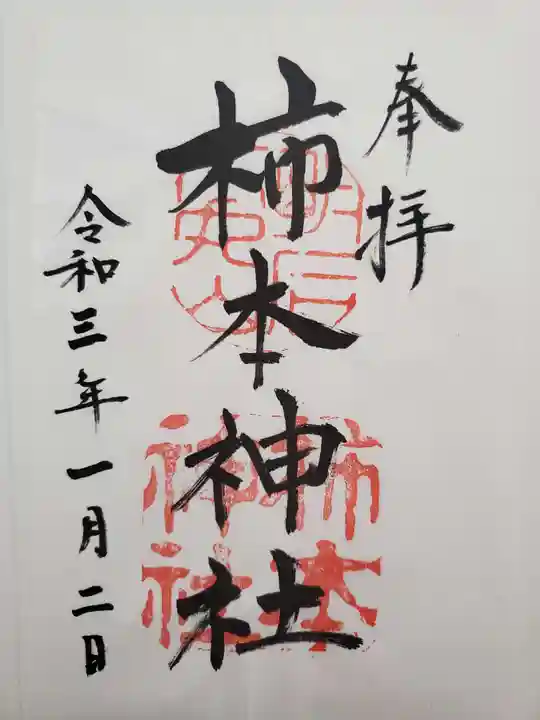 奉拝
柿本神社
令和三年一月二日
柿本
神社